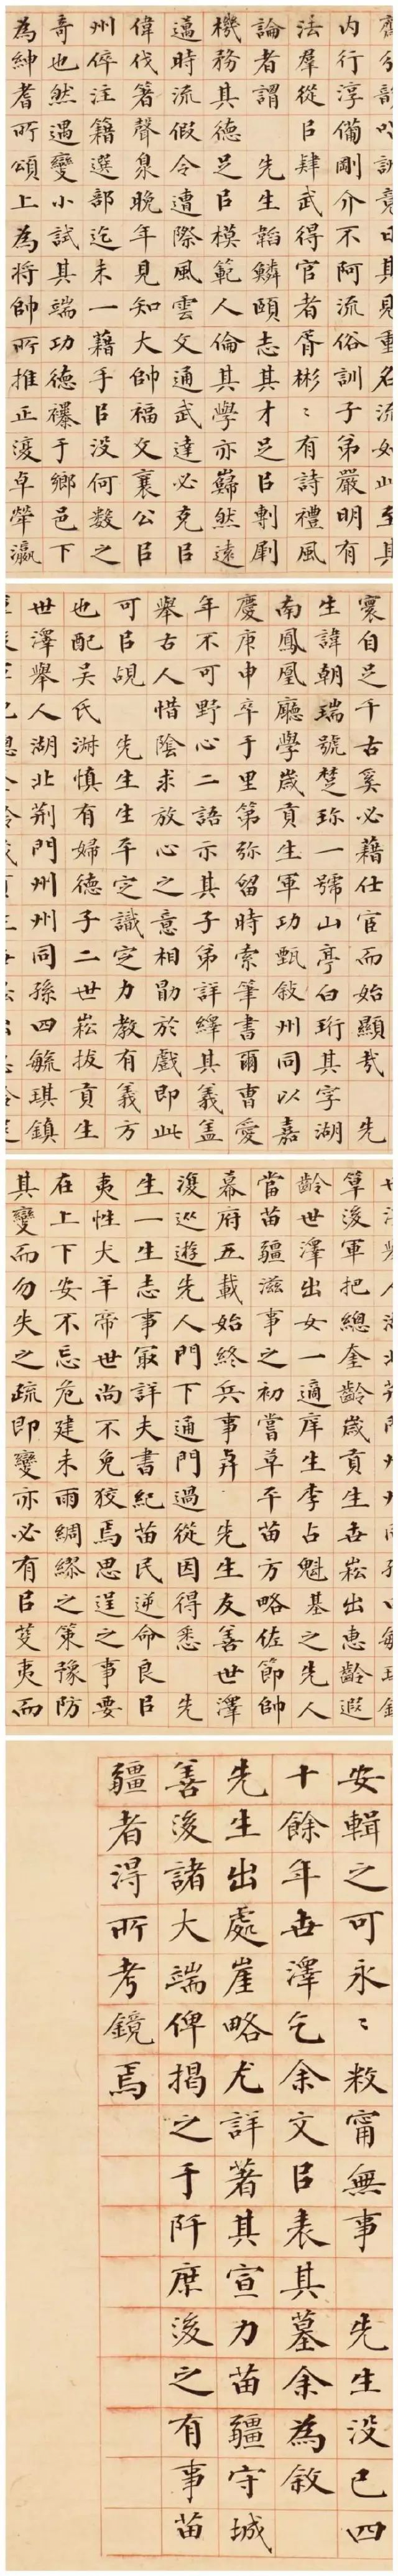 内行淳備剛介不阿流俗訓子弟嚴明有
法羣從㠯肆武得官者胥彬〻有詩禮風
論者謂 先生韜鱗頤志其才足㠯剸劇
機務其德足㠯模範人倫其學亦巋然遠
邁時流假令遭際風雲文通武達必克㠯
偉伐著聲臬晚年見知大帥福文襄公㠯
州倅注籍選部迄未一藉手㠯没何數之
奇也然遇變小試其端功德襮于鄉邑下
為紳耆所頌上為將帥所推正復卓犖瀛
寰自足千古奚必藉仕宦而始顯哉 先
生諱朝瑞號楚珎一號山亭白珩其字湖
南鳳凰廳學歲貢生軍功甄敘州同以嘉
慶庚申卒于里第弥留時索筆書爾曹愛
年不可野心二語示其子弟詳繹其義盖
舉古人惜陰求放心之意相勖於戲即此
可㠯覘 先生生平定識定力教有義方
也配吴氏淑慎有婦德子二世崧拔貢生
世澤舉人湖北荊門州州同孫四毓琪鎮
筸後軍把總奎齡歲貢生世崧出惠齡遐
齡世澤出女一適庠生李占魁基之先人
當苗疆滋事之初嘗草平苗方略佐節帥
幕府五載始終兵事舁 先生友善世澤
復巡遊先人門下通門過從因得悉 先
生一生志事㝡詳夫書紀苗民逆命良㠯
夷性犬羊帝世尚不免狡焉思逞之事要
在上下安不忘危建未雨綢繆之策豫防
其變而勿失之疏即變亦必有㠯芟夷而
安輯之可永〻敉甯無事 先生没已四
十餘年世澤乞余文㠯表其墓余為敘
先生出處崖略尤詳著其宣力苗疆守城
善後諸大端俾揭之于阡庶後之有事苗
疆者淂所考鏡焉